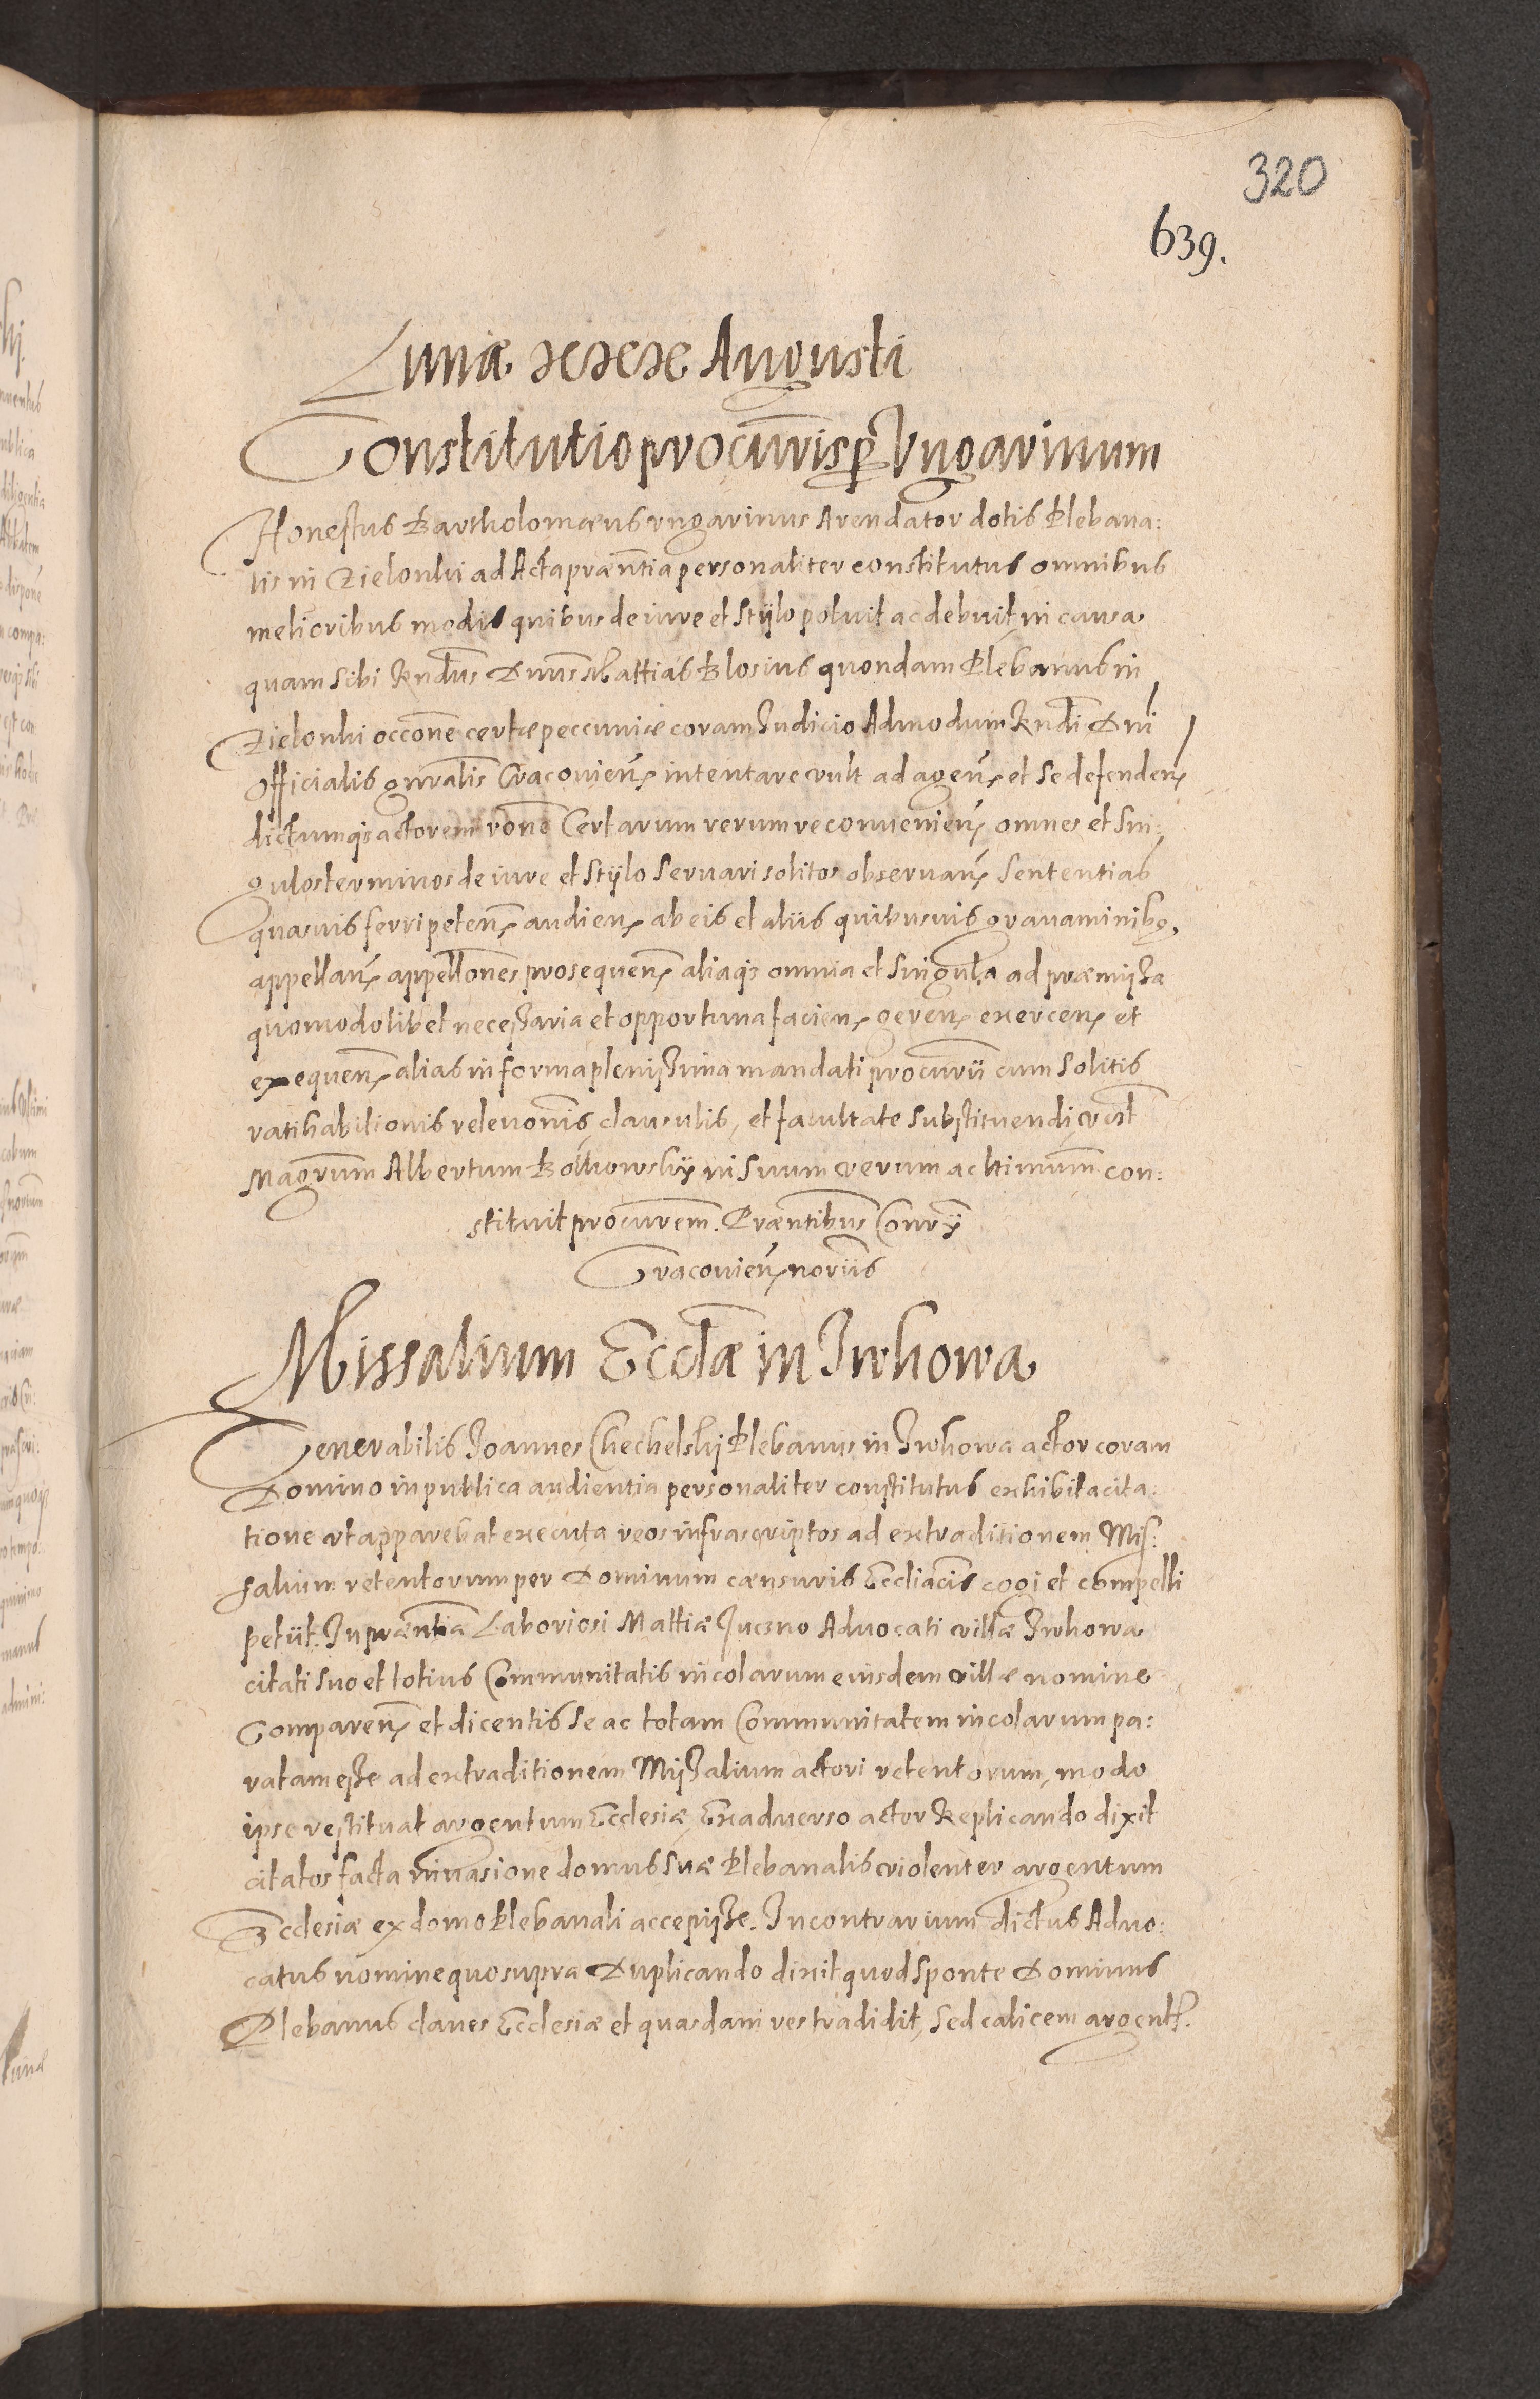 320
639.
Lunæ xxx Augusti
Constitutio procuris per Vngarinum
Honestus Bartholomæus vngarinus Arendator dotis Plebana:
lis in Zielonki ad Acta præntia personaliter constitutus omnibus
melioribus modis quibus de iure et stÿlo potuit ac debuit in causa
quam sibi Rendus Dnus Mattias Blosius quondam Plebanus in
Zielonki occone certæ peccuniæ coram Iudicio Admodum Rndi Dni
Officialis gnralis Cracovien intentare vult ad agen et se defenden
dictumqs actorem rone Certarum rerum reconuenien omnes et sin:
gulos terminos de iure et stÿlo seruari solitos obseruan sententias
quasuis ferri peten audien ab eis et aliis quibusuis grauaminibq
appellan appellones prosequen aliaqs omnia et singula ad præmissa
quomodolibet necessaria et opportuna facien geren exercen et
exequen alias in forma plenissima mandati procurii cum solitis
ratihabitionis releuonis clausulis, et facultate substituendi,
Magrum Albertum in suum verum ac ltimum con:
stituit procurem. Præntibus Conrÿ
Cracouien noriis
Missalium Ecclæ in Iwkowa
Venerabilis Ioannes Chechelski Plebanus in Iwkowa actor coram
Domino in publica audientia personaliter constitutus exhibita cita:
tione vt apparebat executa reos infrascriptos ad extraditionem Mis:
salium retentorum per Dominum cæensuris Eccliacis cogi et compelli
petiit. In præntia Laboriosi Mattiæ Advocati villæ Iwkowa
citati suo et totius Communitatis incolarum eiusdem villæ nomine
Comparen et dicentis se ac totam Communitatem incolarum pa:
ratam esse ad extraditionem Missalium actori retentorum, modo
ipse restituat argentum Ecclesiæ, Exaduerso actor Replicando dixit
citatos facta inuasione domus suæ Plebanalis violenter argentum
Ecclesiæ ex domo Plebanali accepisse. In contrarium dictus Aduo:
catus nomine quo supra Duplicando dixit quod sponte Dominus
Plebanus claues Ecclesiæ et quasdam res tradidit, sed calicem argent.